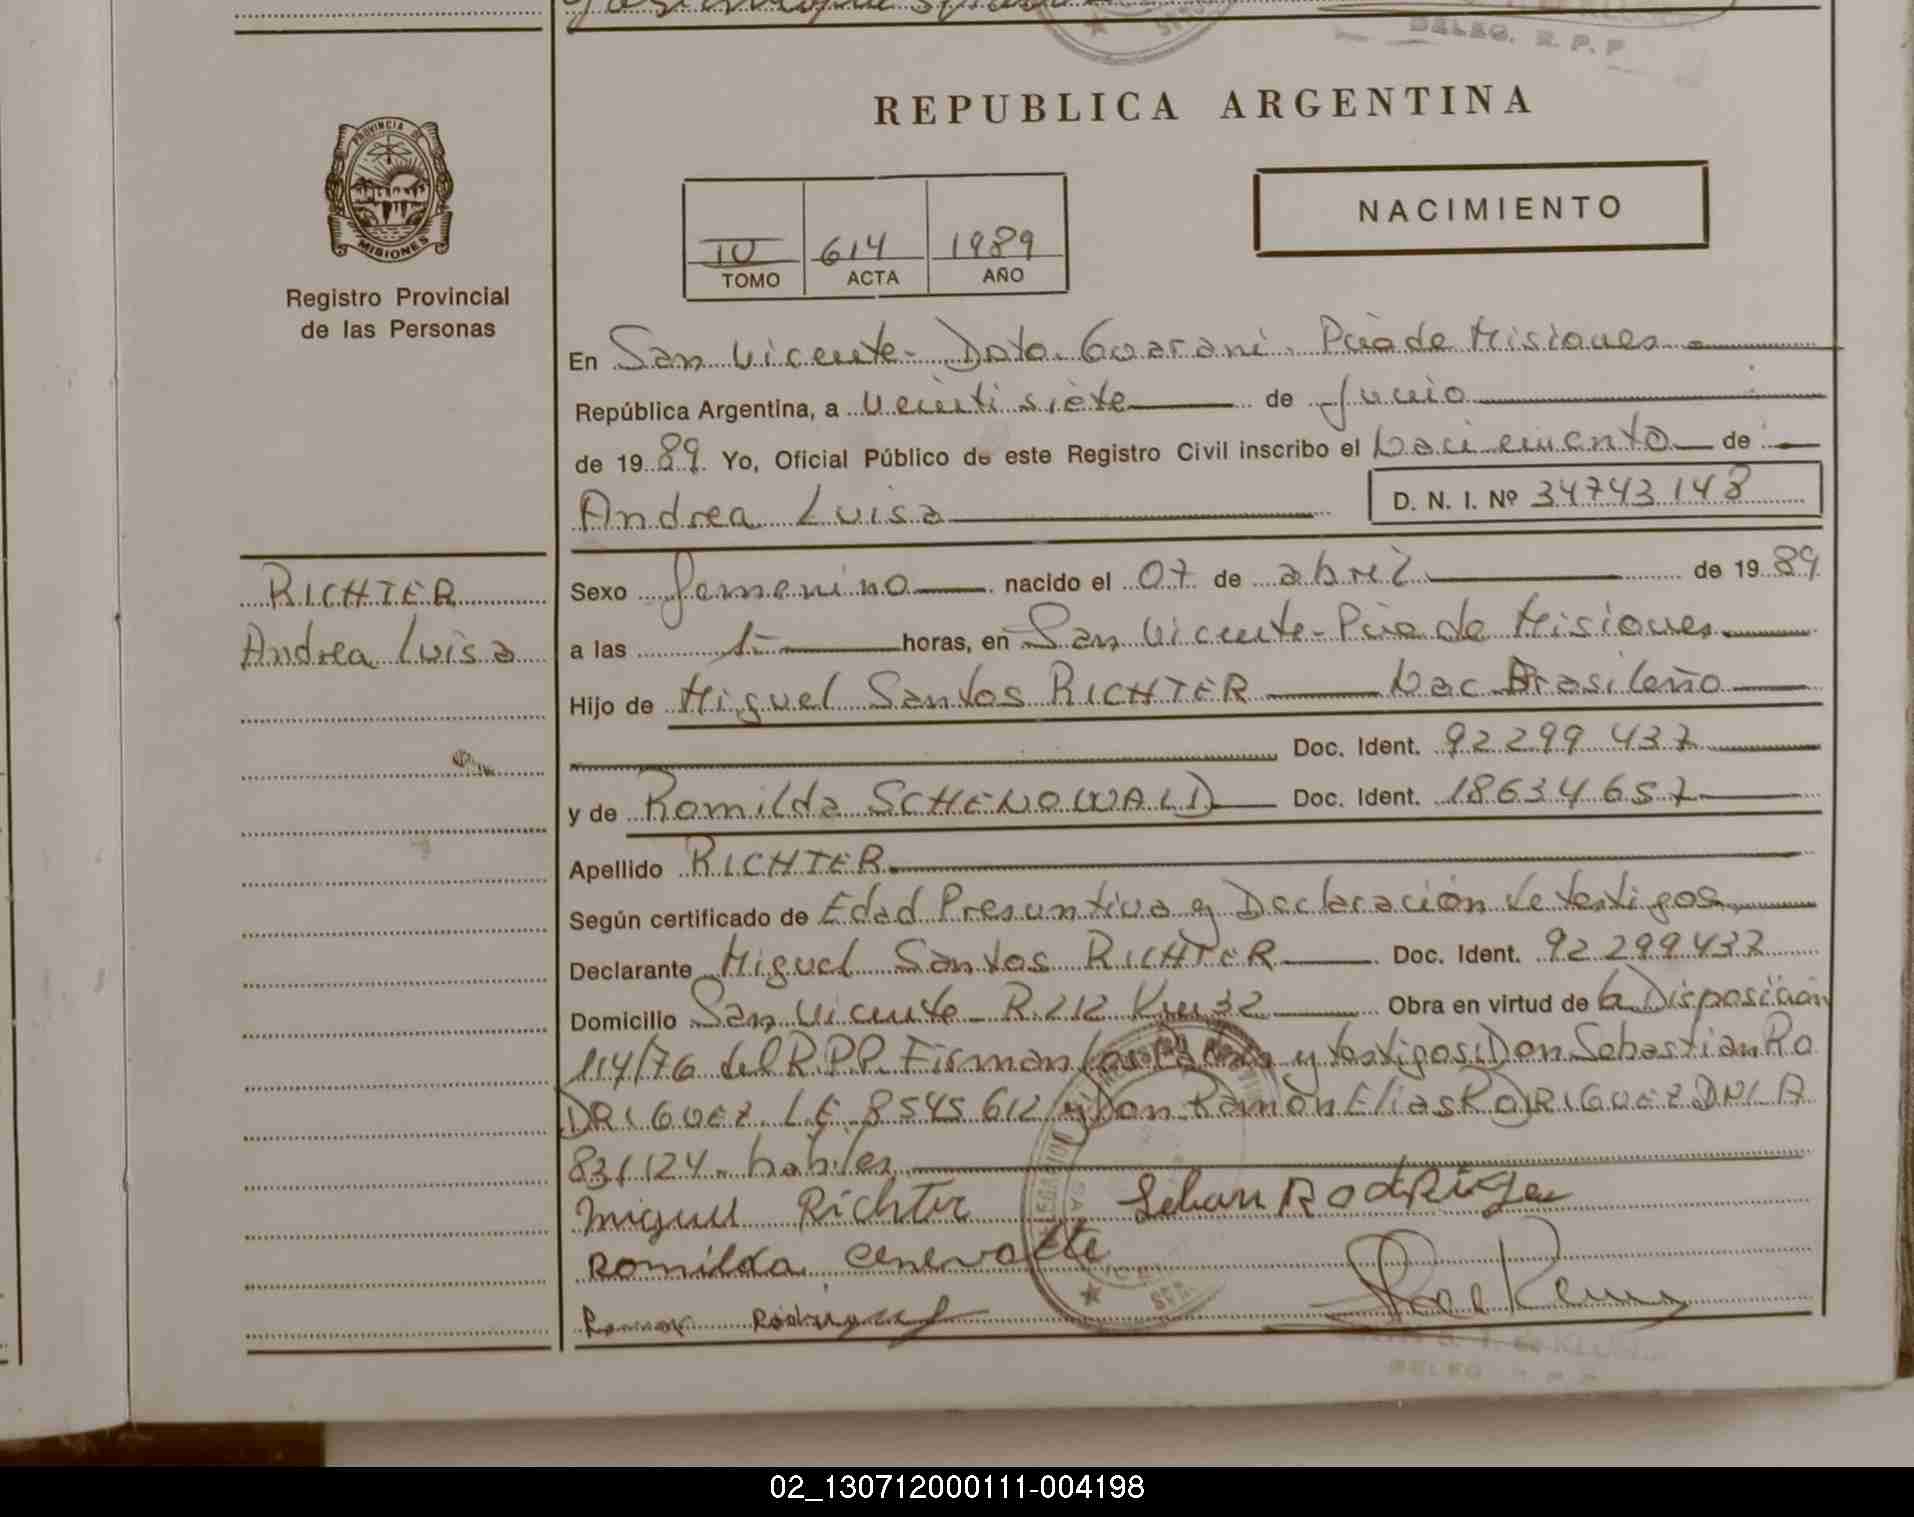 DELEG. R. P. P
REPUBLICA ARGENTINA
PROVINCIA DE
MISIONES
Registro Provincial
de las Personas
NACIMIENTO
IV 614 1989
TOMO ACTA AÑO
En San Vicente - Dpto. Guaraní. Pcia de Misiones
República Argentina, a veintisiete de Junio
de 1989. Yo, Oficial Público de este Registro Civil inscribo el Nacimiento de
Andrea Luisa D. N. I. Nº 34743148
RICHTER
Andrea Luisa
Sexo femenino nacido el 07 de abril de 1989
a las 1- horas, en San Vicente - Pcia de Misiones
Hijo de Miguel Santos RICHTER Nac Brasileño
Doc. Ident. 92299437
y de Romilda SCHENOWALD Doc. Ident. 18634657
Apellido RICHTER
Según certificado de Edad Presuntiva y Declaración de testigos
Declarante Miguel Santos RICHTER Doc. Ident. 92299437
Domicilio San Vicente - R.212 Km 32 Obra en virtud de la Disposición
114/76 del R.P.P. Firman los Padres y testigos: Don Sebastian RO
DRIGUEZ. L.E 8545612 y Don Ramón Elias RODRIGUEZ DNI.A
831124. habiles
Miguel Richter RODRIGUEZ
Romilda
Ramon Rodriguez
DELEG
02_130712000111-004198